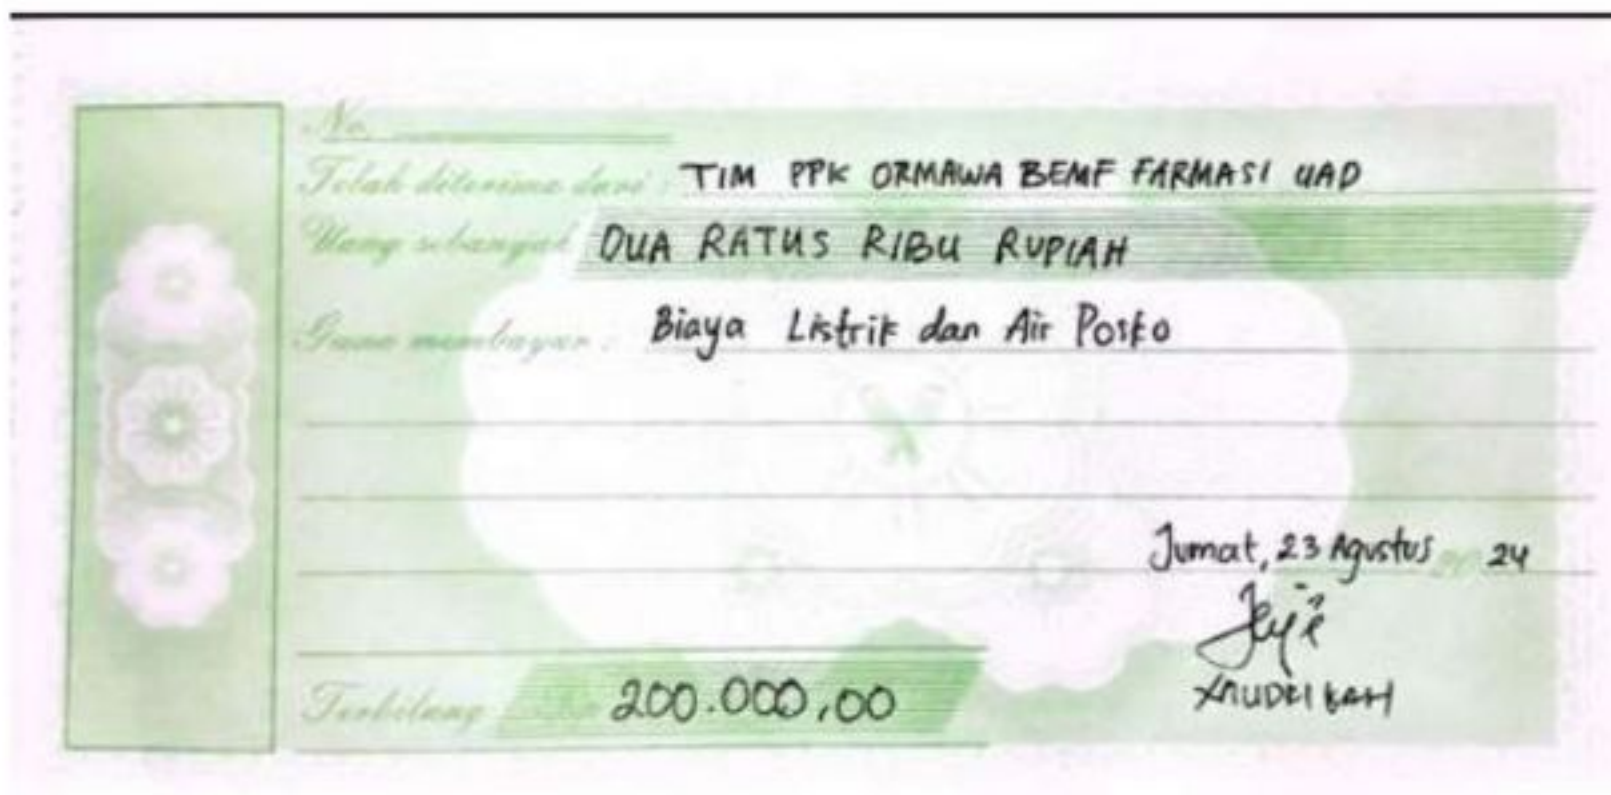 No.
Telah diterima dari : TIM PPK ORMAWA BEMF FARMASI UAD
Uang sebanyak DUA RATUS RIBU RUPIAH
Guna membayar : Biaya Listrik dan Air Posko
Jumat, 23 Agustus 20 24
Terbilang 200.000,00